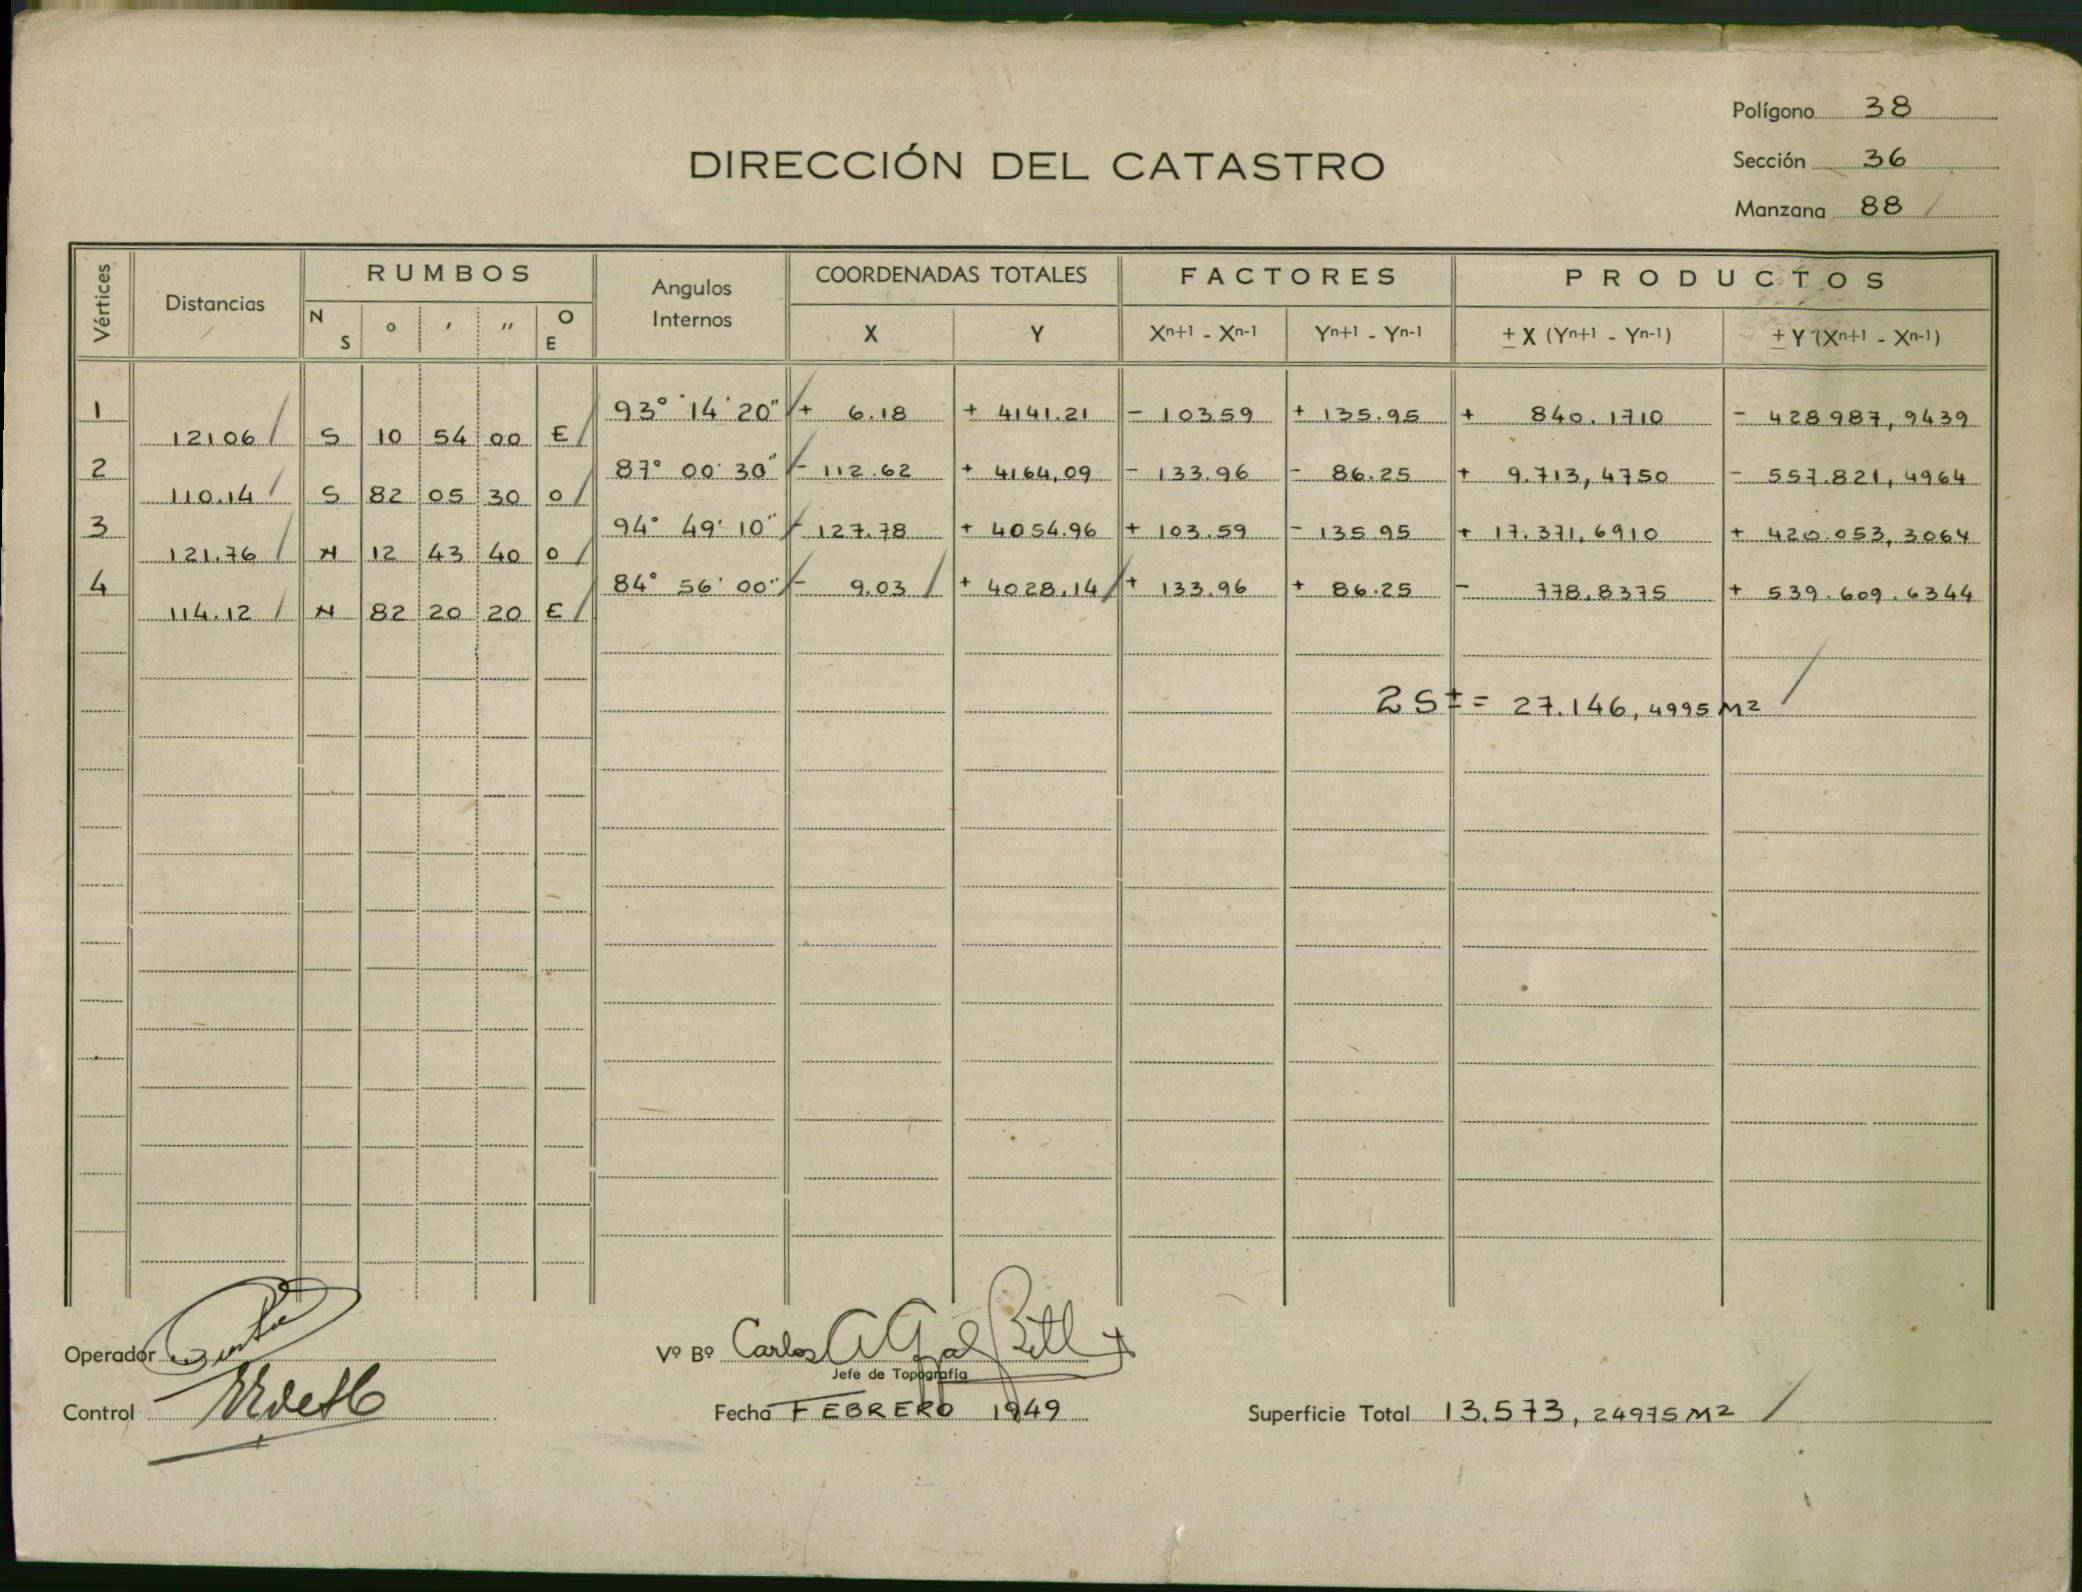 Polígono 38
DIRECCIÓN DEL CATASTRO
Sección 36
Manzana 88 /
Vértices Distancias RUMBOS Angulos Internos COORDENADAS TOTALES FACTORES PRODUCTOS
N S ° ′ ″ O E X Y Xn+1 - Xn-1 Yn+1 - Yn-1 ± X (Yn+1 - Yn-1) ± Y (Xn+1 - Xn-1)
1 93° 14' 20" + 6.18 + 4141.21 - 103.59 + 135.95 + 840.1710 - 428987,9439
121.06 / S 10 54 00 E /
2 87° 00' 30" - 112.62 + 4164,09 - 133.96 - 86.25 + 9.713,4750 - 557.821,4964
110.14 / S 82 05 30 O /
3 94° 49' 10" - 127.78 + 4054.96 + 103.59 - 135.95 + 17.371,6910 + 420.053,3064
121.76 / N 12 43 40 O /
4 84° 56' 00" - 9.03 / + 4028.14 / + 133.96 + 86.25 - 778.8375 + 539.609.6344
114.12 / N 82 20 20 E /
2 S ± = 27.146,4995 M2 /
Operador
Vº Bº Carlos A
Jefe de Topografía
Control
Fecha FEBRERO 1949
Superficie Total 13.573,24975 M2 /